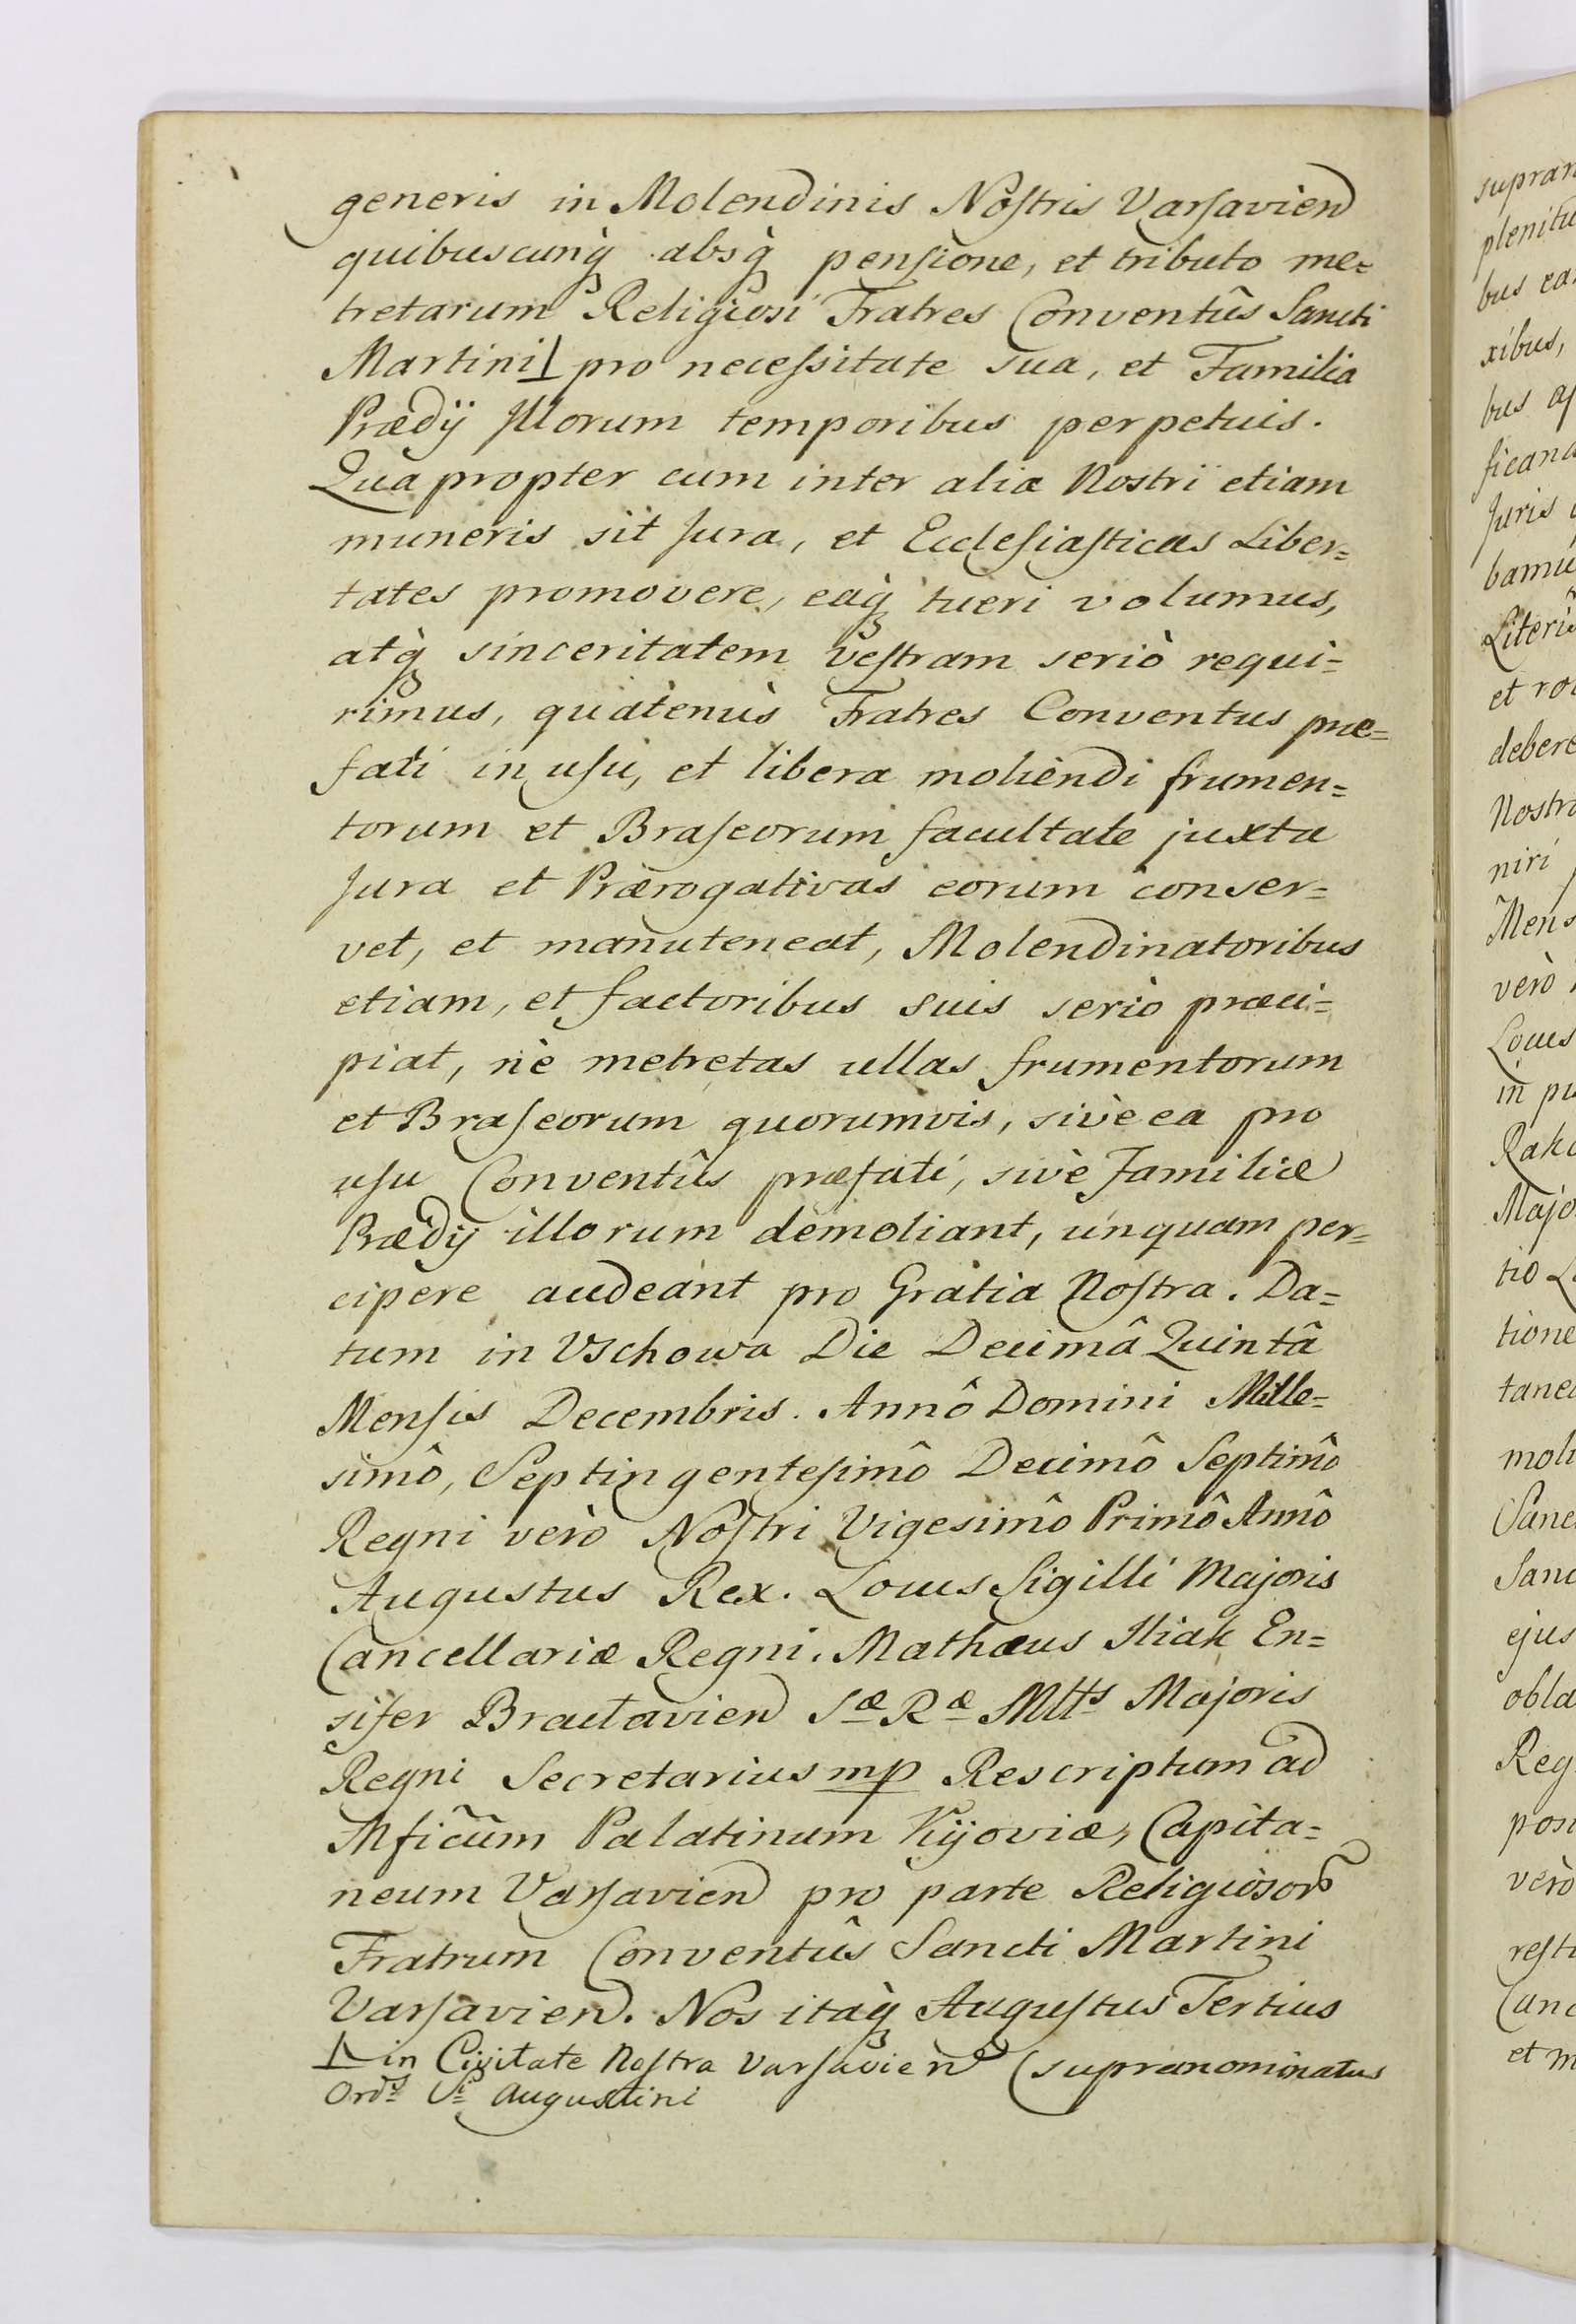 generis in Molendinis Nostris Varsavien
quibuscunq̀ absq̀ pensione, et tributo me=
tretarum Religiosi Fratres Conventûs Sancti
Martini⊥ pro necessitate sua, et Familia
Prædÿ Illorum temporibus perpetuis.
Qua propter cum inter alia Nostri etiam
muneris sit Jura, et Ecclesiasticas Liber=
tates promovere, eaq̀ tueri volumus,
atq̀ sinceritatem vestram seriò requi=
rimus, quatenùs Fratres Conventus præ=
fati in usu, et libera moliendi frumen=
torum et Braseorum facultate juxta
Jura et Prærogativas eorum conser=
vet, et manuteneat, Molendinatoribus
etiam, et factoribus suis seriò præci=
piat, nè metretas ullas frumentorum
et Braseorum quorumvis, sivè ea pro
usu Conventûs præfati, sivè Familiæ
Prædÿ illorum demoliant, unquam per=
cipere audeant pro Gratia Nostra. Da=
tum in Vschowa Die Decimâ Quintâ
Mensis Decembris. Annô Domini Mille=
simô, Septingentesimô Decimô Septimô
Regni verò Nostri Vigesimô Primô Annô
Augustus Rex. Locus Sigilli Majoris
Cancellariæ Regni. Mathæus Iliak En=
sifer Braclavien Sæ Ræ Mtts Majoris
Regni Secretarius mp Rescriptum ad
Mficũm Palatinum Kijoviæ, Capita=
neum Varsavien pro parte Religiosor̃
Fratrum Conventûs Sancti Martini
Varsavien. Nos itaq̀ Augustus Tertius
⊥ in Civitate Nostra Varsavien (supranominatus
Ordis Si Augustini
supran
plenitu
bus ea
xibus,
bus
ficand
Juris
bamu
Literis
et ro
debere
Nostr
niri
Mens
verò
Locus
in pu
Rak
Majo
tio L
tione
tane
moli
Sanc
Sanc
ejus
obla
Reg
pos
verò
resti
Canc
et m